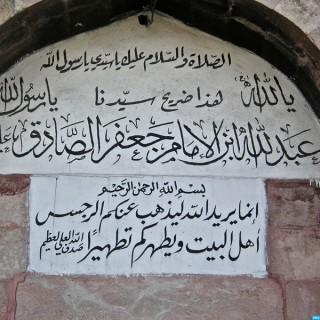 الصلاة والسلام عليك يا سيدي يا رسول الله
يا الله هذا ضريح سيدنا يا رسول الله
عبد الله ابن الامام جعفر الصادق
بسم الله الرحمن الرحيم
إنما يريد الله ليذهب عنكم الرجس
أهل البيت ويطهركم تطهيرًا صدق الله العلي العظيم